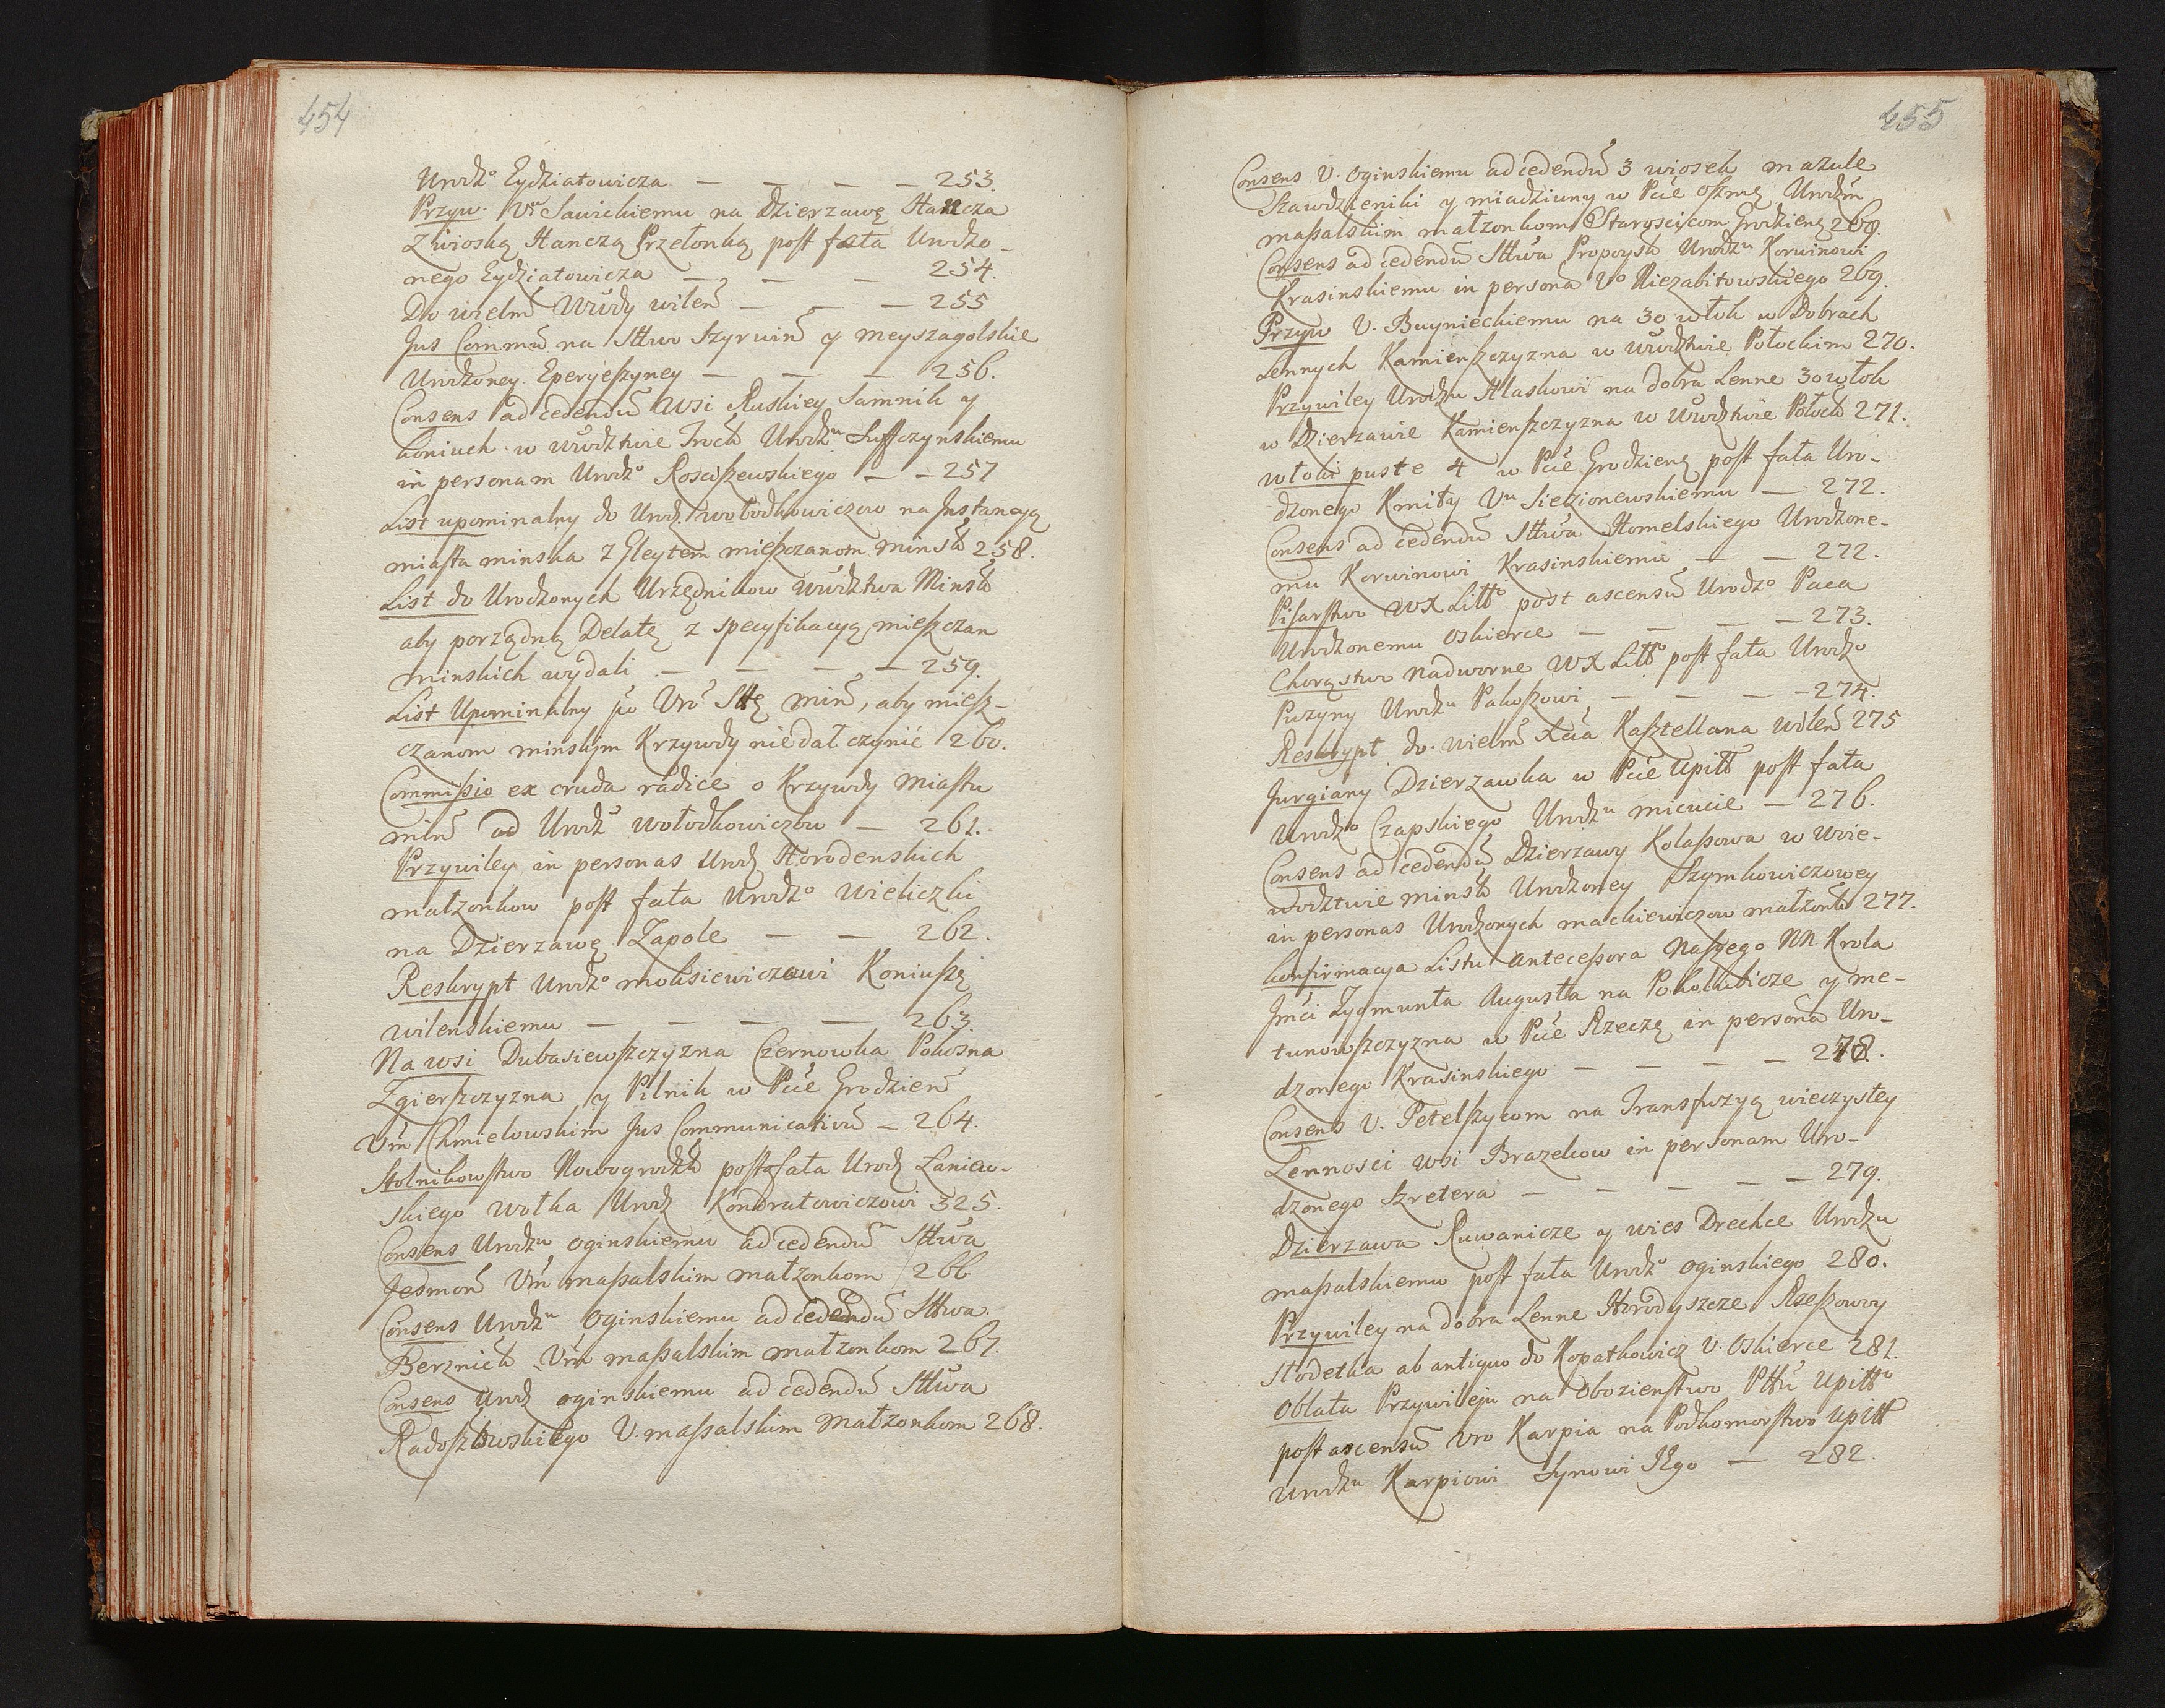 454
Urodz° Eydziatowicza — — — — 253.
Przyw. Vr Sawickiemu na Dzierzawę Hancza
Z wioską Hanczą Przełomką post fata Urodzo-
nego Eydziatowicza — — — 254.
Do wielm Wwdy wilen — — — 255
Jus Commu na Sttwo Szyrwin y Meyszagolskie
Urodzoney Eperyeszyney — — — 256.
Consens ad cedendu wsi Ruskiey Samnik y
koniuch w wwdztwie Trock Urodzu Suffczynskiemu
in personam Urodz° Rosciszewskiego — — 257
List upominalny do Urodz. wołodkowiczow na Instancyą
miasta minska z Gleytem mieszczanom minsk 258.
List do Urodzonych Urzędnikow wwdztwa Minsk
aby porządną Delatę z specyfikacyą mieszczan
minskich wydali — — — — 259.
List Upominalny po Uro Sttę min, aby miesz-
czanom minskim Krzywdy nie dał czynic 260.
Commissio ex cruda radice o Krzywdy miastu
min ad Urodz wołodkowiczow — 261.
Przywiley in personas Urodz Horodenskich
małzonkow post fata Urodz° wieliczki
na Dzierzawę Zapole — — 262.
Reskrypt Urodz° mokisiewiczowi Koniuszę
wilenskiemu — — — — 263.
Na wsi Dubasiewszczyzna Czernowka Pokosna
Zgierszczyzna y Pilnik w Pcie Grodzien
Vm Chmielowskim Jus Communicativu — 264.
Stolnikowstwo Nowogrodzk post fata Urodz Laniew-
skiego wołka Urodz Kondratowiczowi 325.
Consens Urodzu oginskiemu ad cedendu Sttwa
Jesmon Vm massalskim małzonkom 266
Consens Urodzu Oginskiemu ad cedendu Sttwa
Berznick Vm massalskim małzonkom 267.
Consens Urodz oginskiemu ad cedendu Sttwa
Radoszkowskiego V. massalskim małzonkom 268.
455
Consens V. Oginskiemu ad cedendu 3 wiosek mazule
Stawdzieniki y miadziuny w Pcie oszmę Urodzm
massalskim małzonkom Staroscicom Grodzienę 268.
Consens ad cedendu Sttwa Propoysk Urodzu Korwinowi
Krasinskiemu in persona V° Niezabitowskiego 269.
Przyw V. Buynieckiemu na 30 włok w Dobrach
Lennych Kamienszczyzna w wwdztwie Połockim 270.
Przywiley Urodzu Hlaskowi na dobra Lenne 30 włok
w Dzierzawie Kamienszczyzna w wwdztwie Połock 271.
włoki puste 4 w Pcie Grodzienę post fata Uro-
dzonego Kmity Vu Siezionewskiemu — 272.
Consens ad cedendu Sttwa Homelskiego Urodzone-
mu Korwinowi Krasinskiemu — — 272.
Pisarstwo WX Litt° post ascensu Urodz° Paca
Urodzonemu Oskierce — — — — 273.
Chorąstwo nadworne WX Litt° post fata Urodz°
Puzyny Urodzu Pakoszowi — — — — 274.
Reskrypt do wielm Xcia Kasztellana wilen 275
Jurgiany Dzierzawka w Pcie Upitt post fata
Urodz° Czapskiego Urodzu micucie — 276.
Consens ad cedendu Dzierzawy Kolassowa w Woie-
wodztwie minsk Urodzoney Szymkowiczowey
in personas Urodzonych mackiewiczow małzonk 277.
konfirmacya Listu Antecessora Naszego NN Krola
Jmci Zygmunta Augusta na Poholubicze y me-
tunowszczyzna w Pcie Rzeczę in persona Uro-
dzonego Krasinskiego — — — — 278.
Consens V. Petelszycom na Transfuzyą wieczystey
Lennosci wsi Brazekow in personam Uro-
dzonego Szretera — — — — — 279.
Dzierzawa Ruwanicze y wies Drechce Urodzu
massalskiemu post fata Urodz° oginskiego 280.
Przywiley na dobra Lenne Horodyszcze Rzeszowoy
Stodetka ab antiquo do Kopatkowicz V. Oskierce 281.
Oblata Przywileju na Obozienstwo Pttu Upitt°
post ascensu Uro Karpia na Podkomorstwo Upitt
Urodzu Karpiowi Synowi JEgo — 282.